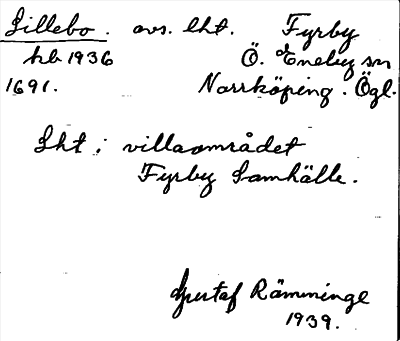 Lillebo. avs. lht. Fyrby
hb 1936 Ö. Eneby sn
1691. Norrköping. Ögl.
Lht i villaområdet
Fyrby Samhälle.
Gustaf Rämminge
1939.